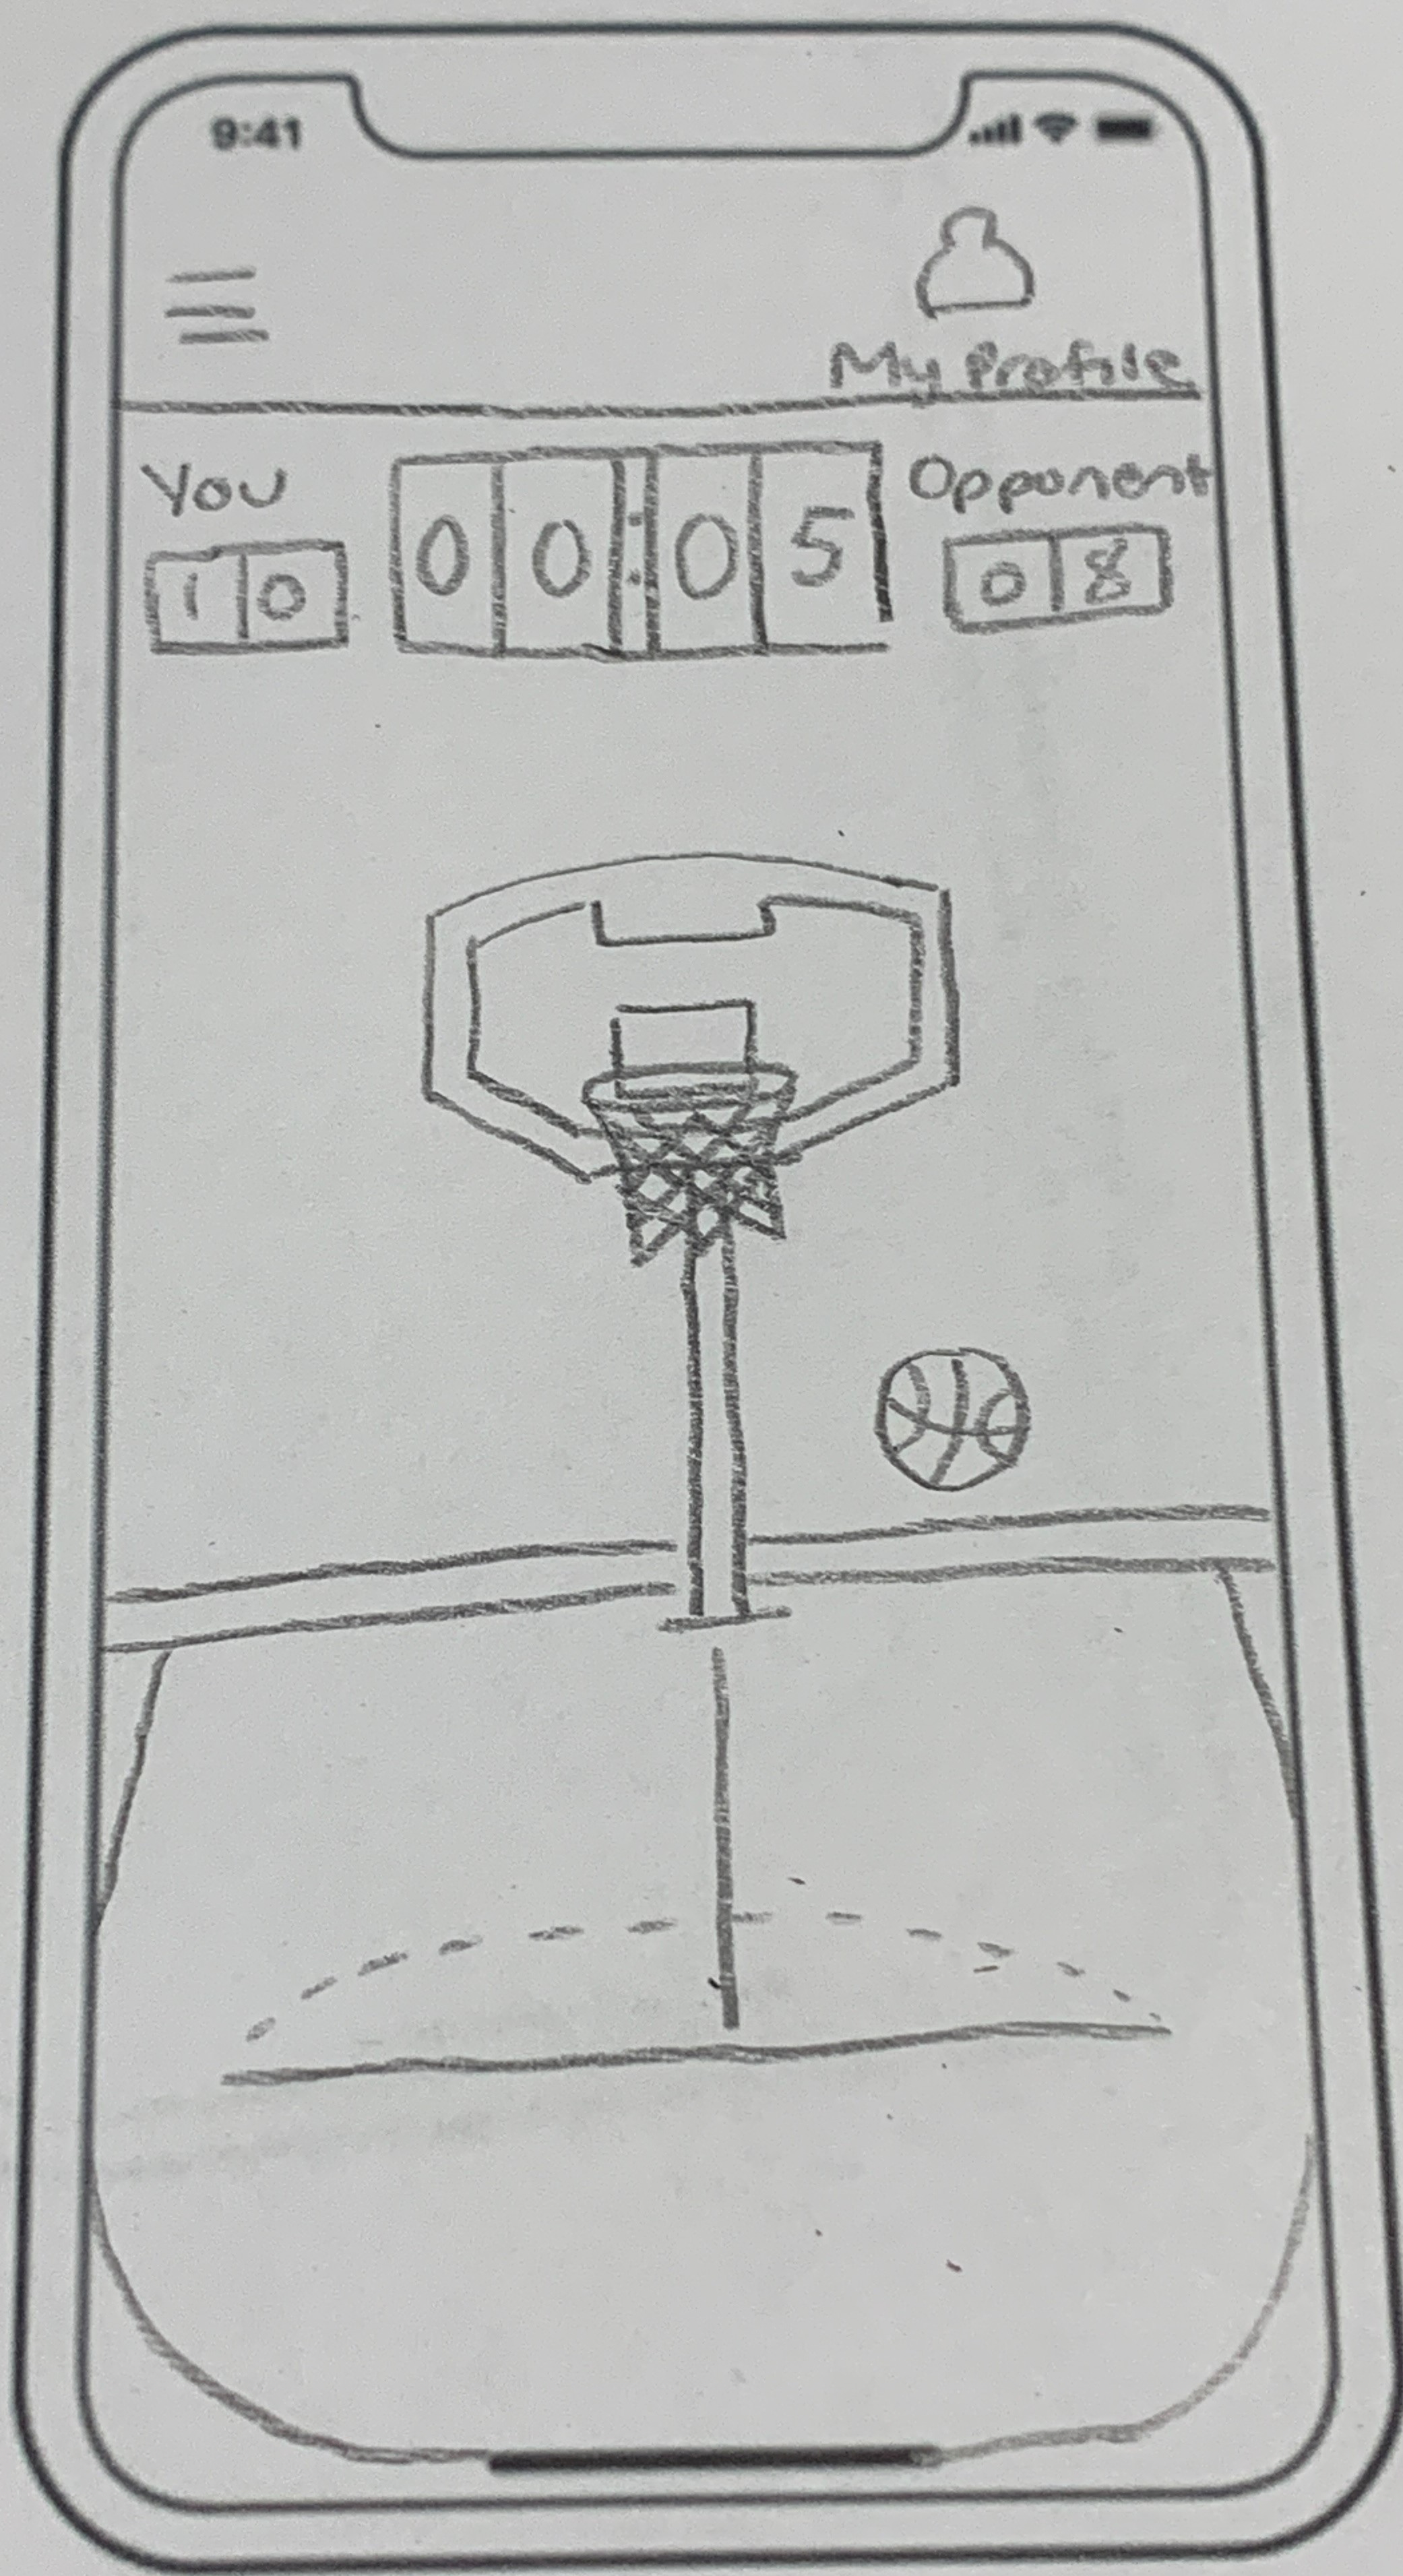 9:41
My Profile
You
00:05
Opponent
10
08